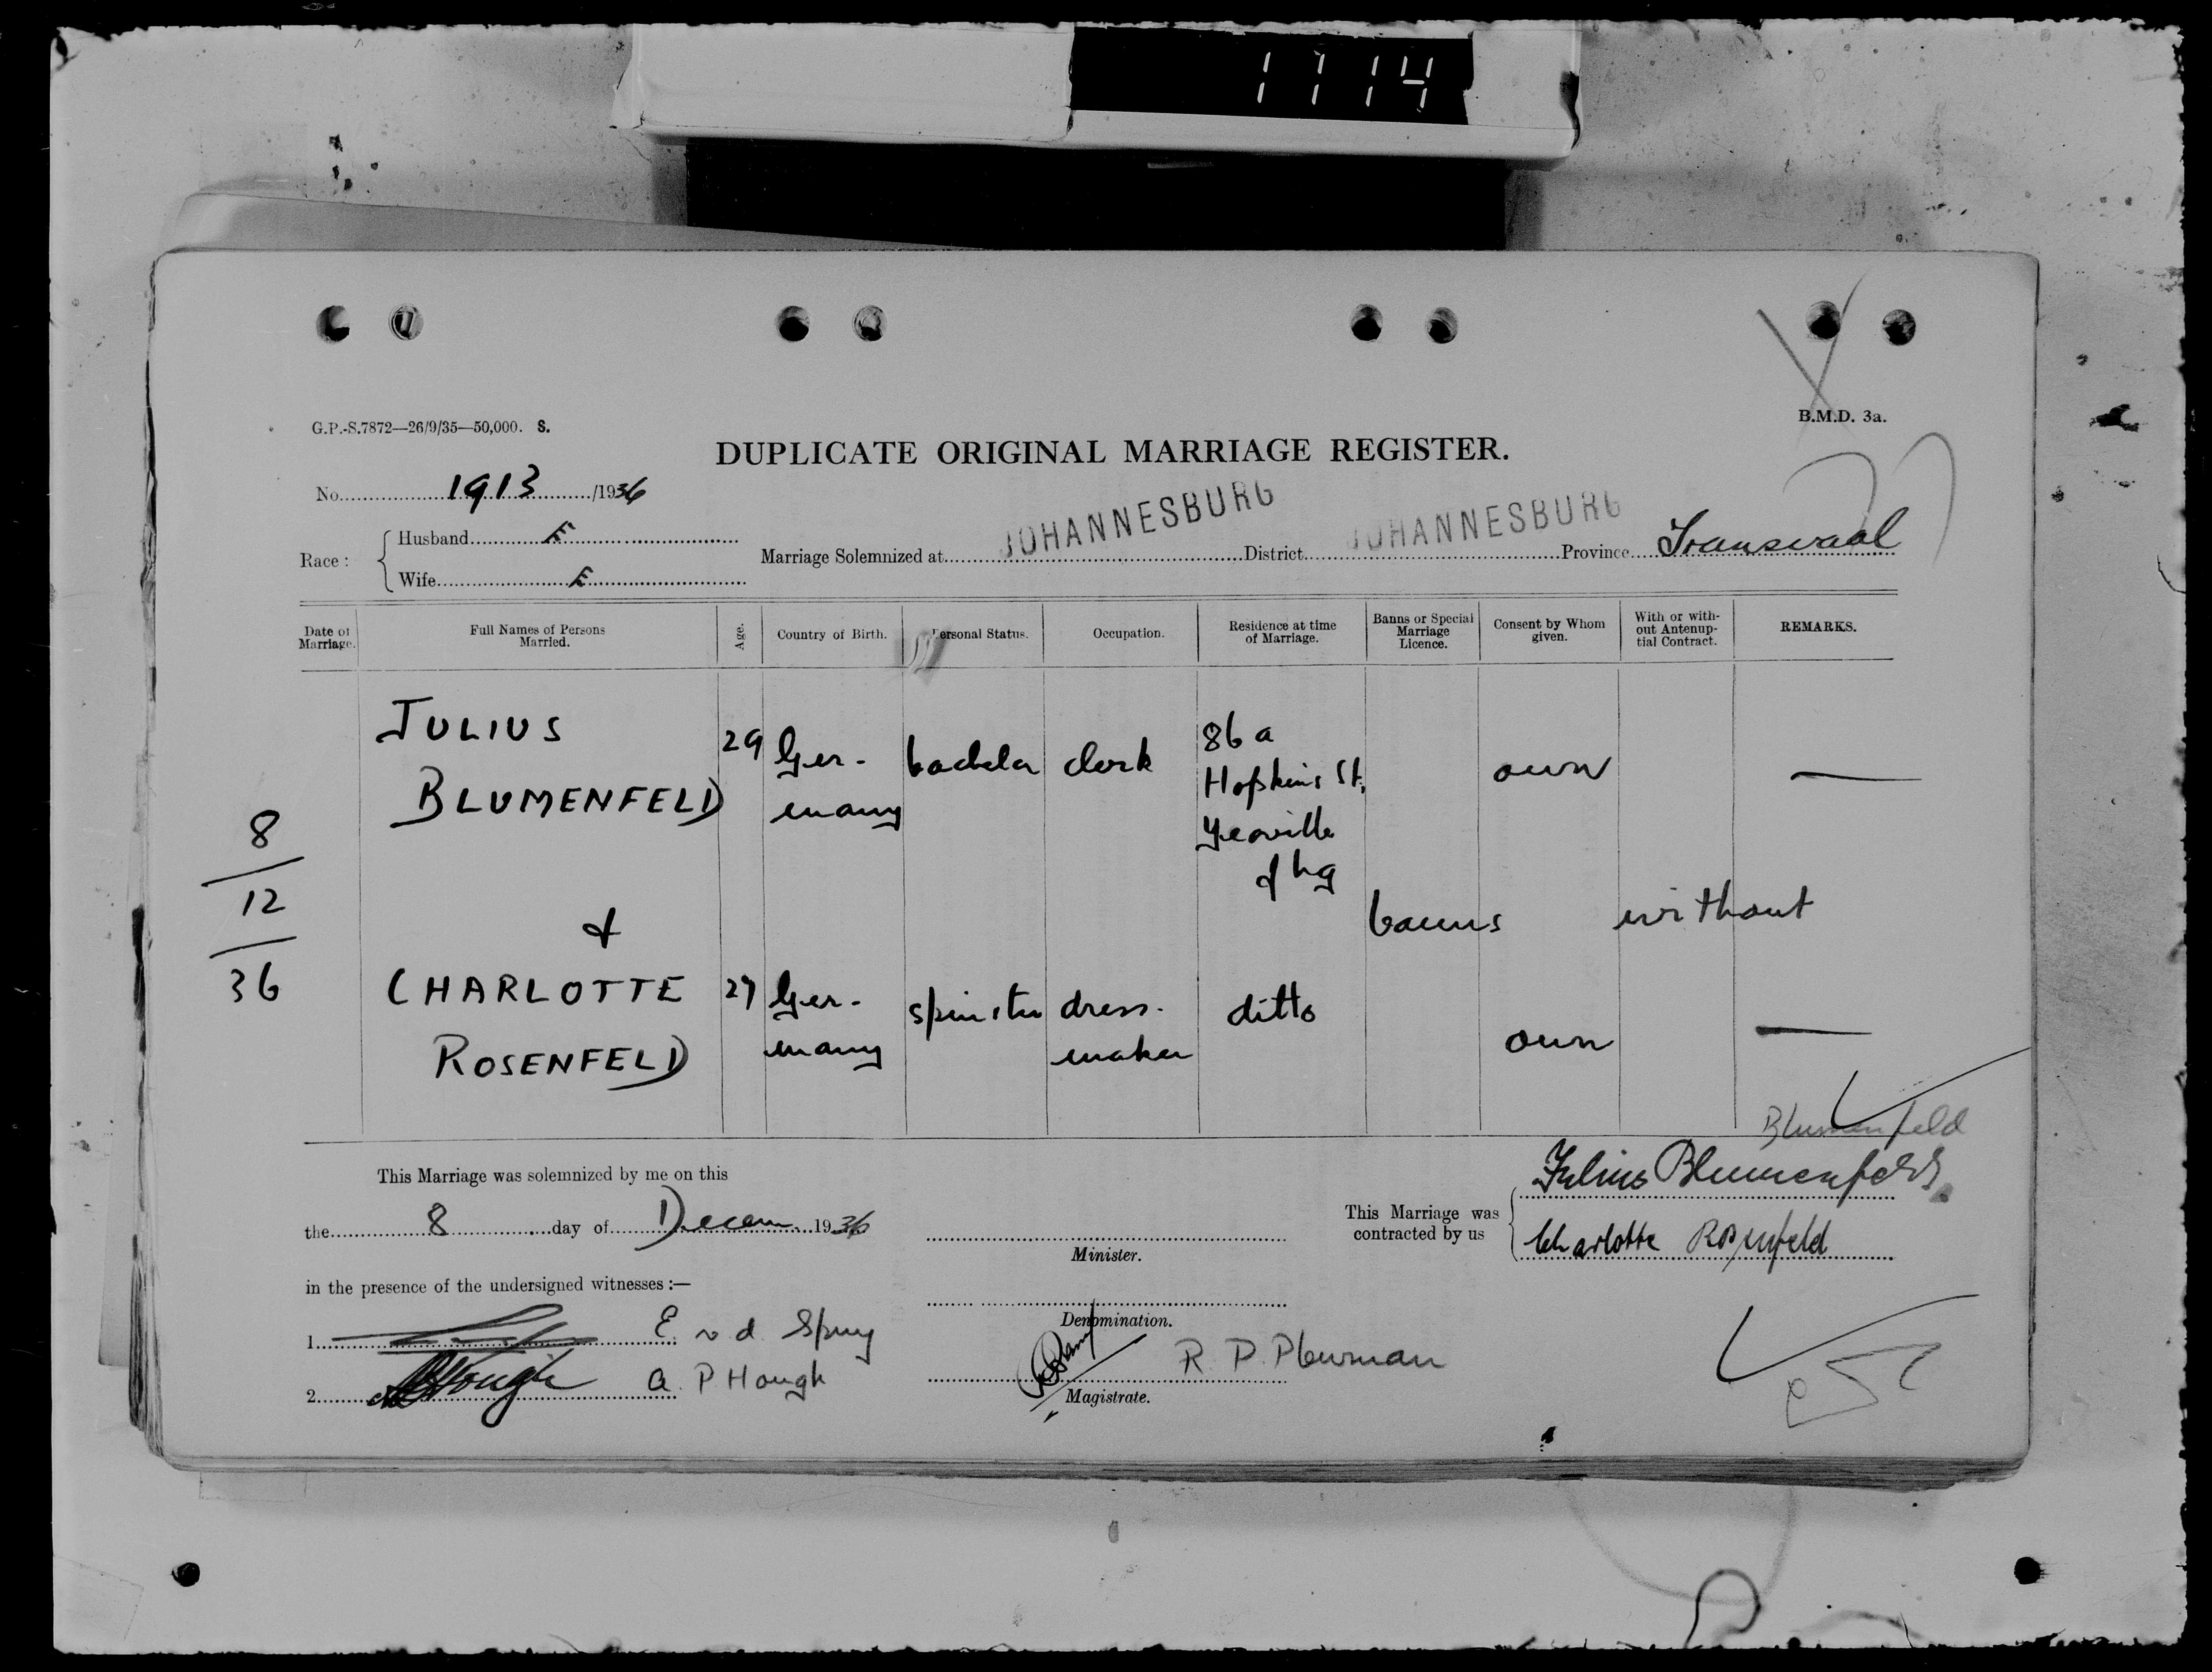 1714
B.M.D. 3a.
G.P.-S.7872—26/9/35—50,000. S.
DUPLICATE ORIGINAL MARRIAGE REGISTER.
No. 1913 /1936
Race : Husband E
Wife E
Marriage Solemnized at JOHANNESBURG District JOHANNESBURG Province Transvaal
Date of Marriage. Full Names of Persons Married. Age. Country of Birth. Personal Status. Occupation. Residence at time of Marriage. Banns or Special Marriage Licence. Consent by Whom given. With or without Antenuptial Contract. REMARKS.
8/12/36
JULIUS BLUMENFELD 29 Ger-many bachelor clerk 86a Hopkins St. Yeoville Jhg own —
&
banns without
CHARLOTTE ROSENFELD 27 Ger-many spinster dress-maker ditto own —
Blumenfeld
This Marriage was solemnized by me on this
the 8 day of Decem. 1936
in the presence of the undersigned witnesses :—
1. E. v d Spuy
2. A P Hough A. P Hough
Minister.
Denomination.
R. P. Plewman
Magistrate.
This Marriage was contracted by us
Julius Blumenfeld
Charlotte Rosenfeld